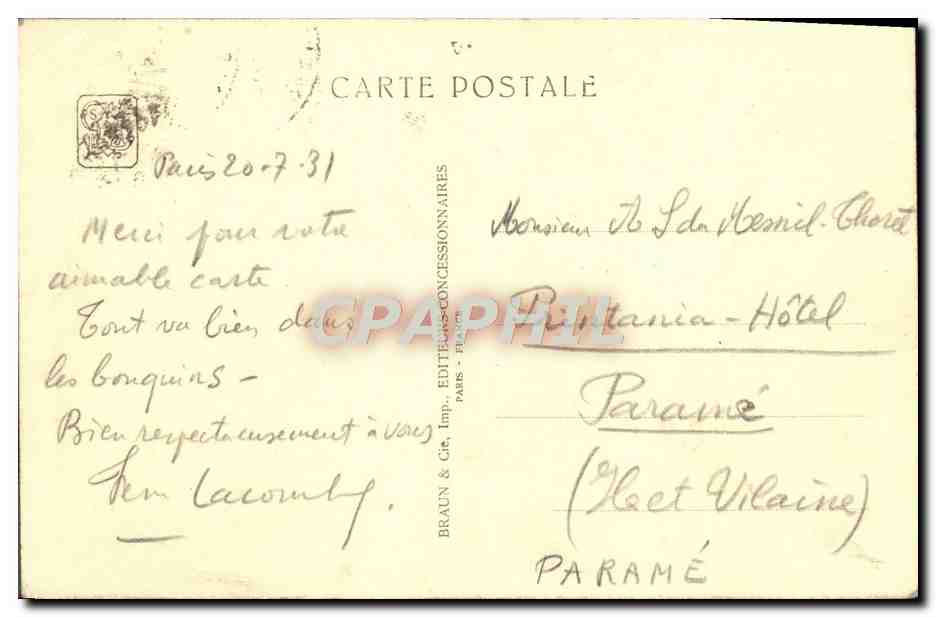 CARTE POSTALE
Paris 20-7-31
Merci pour votre
aimable carte
Tout va bien dans
les bouquins -
Bien respectueusement à vous
Lacombe.
BRAUN & Cie, Imp., EDITEURS-CONCESSIONNAIRES
PARIS - FRANCE
Monsieur A du Mesnil-Thoret
Printania-Hôtel
Paramé
(Ille et Vilaine)
PARAMÉ
CPAPHIL